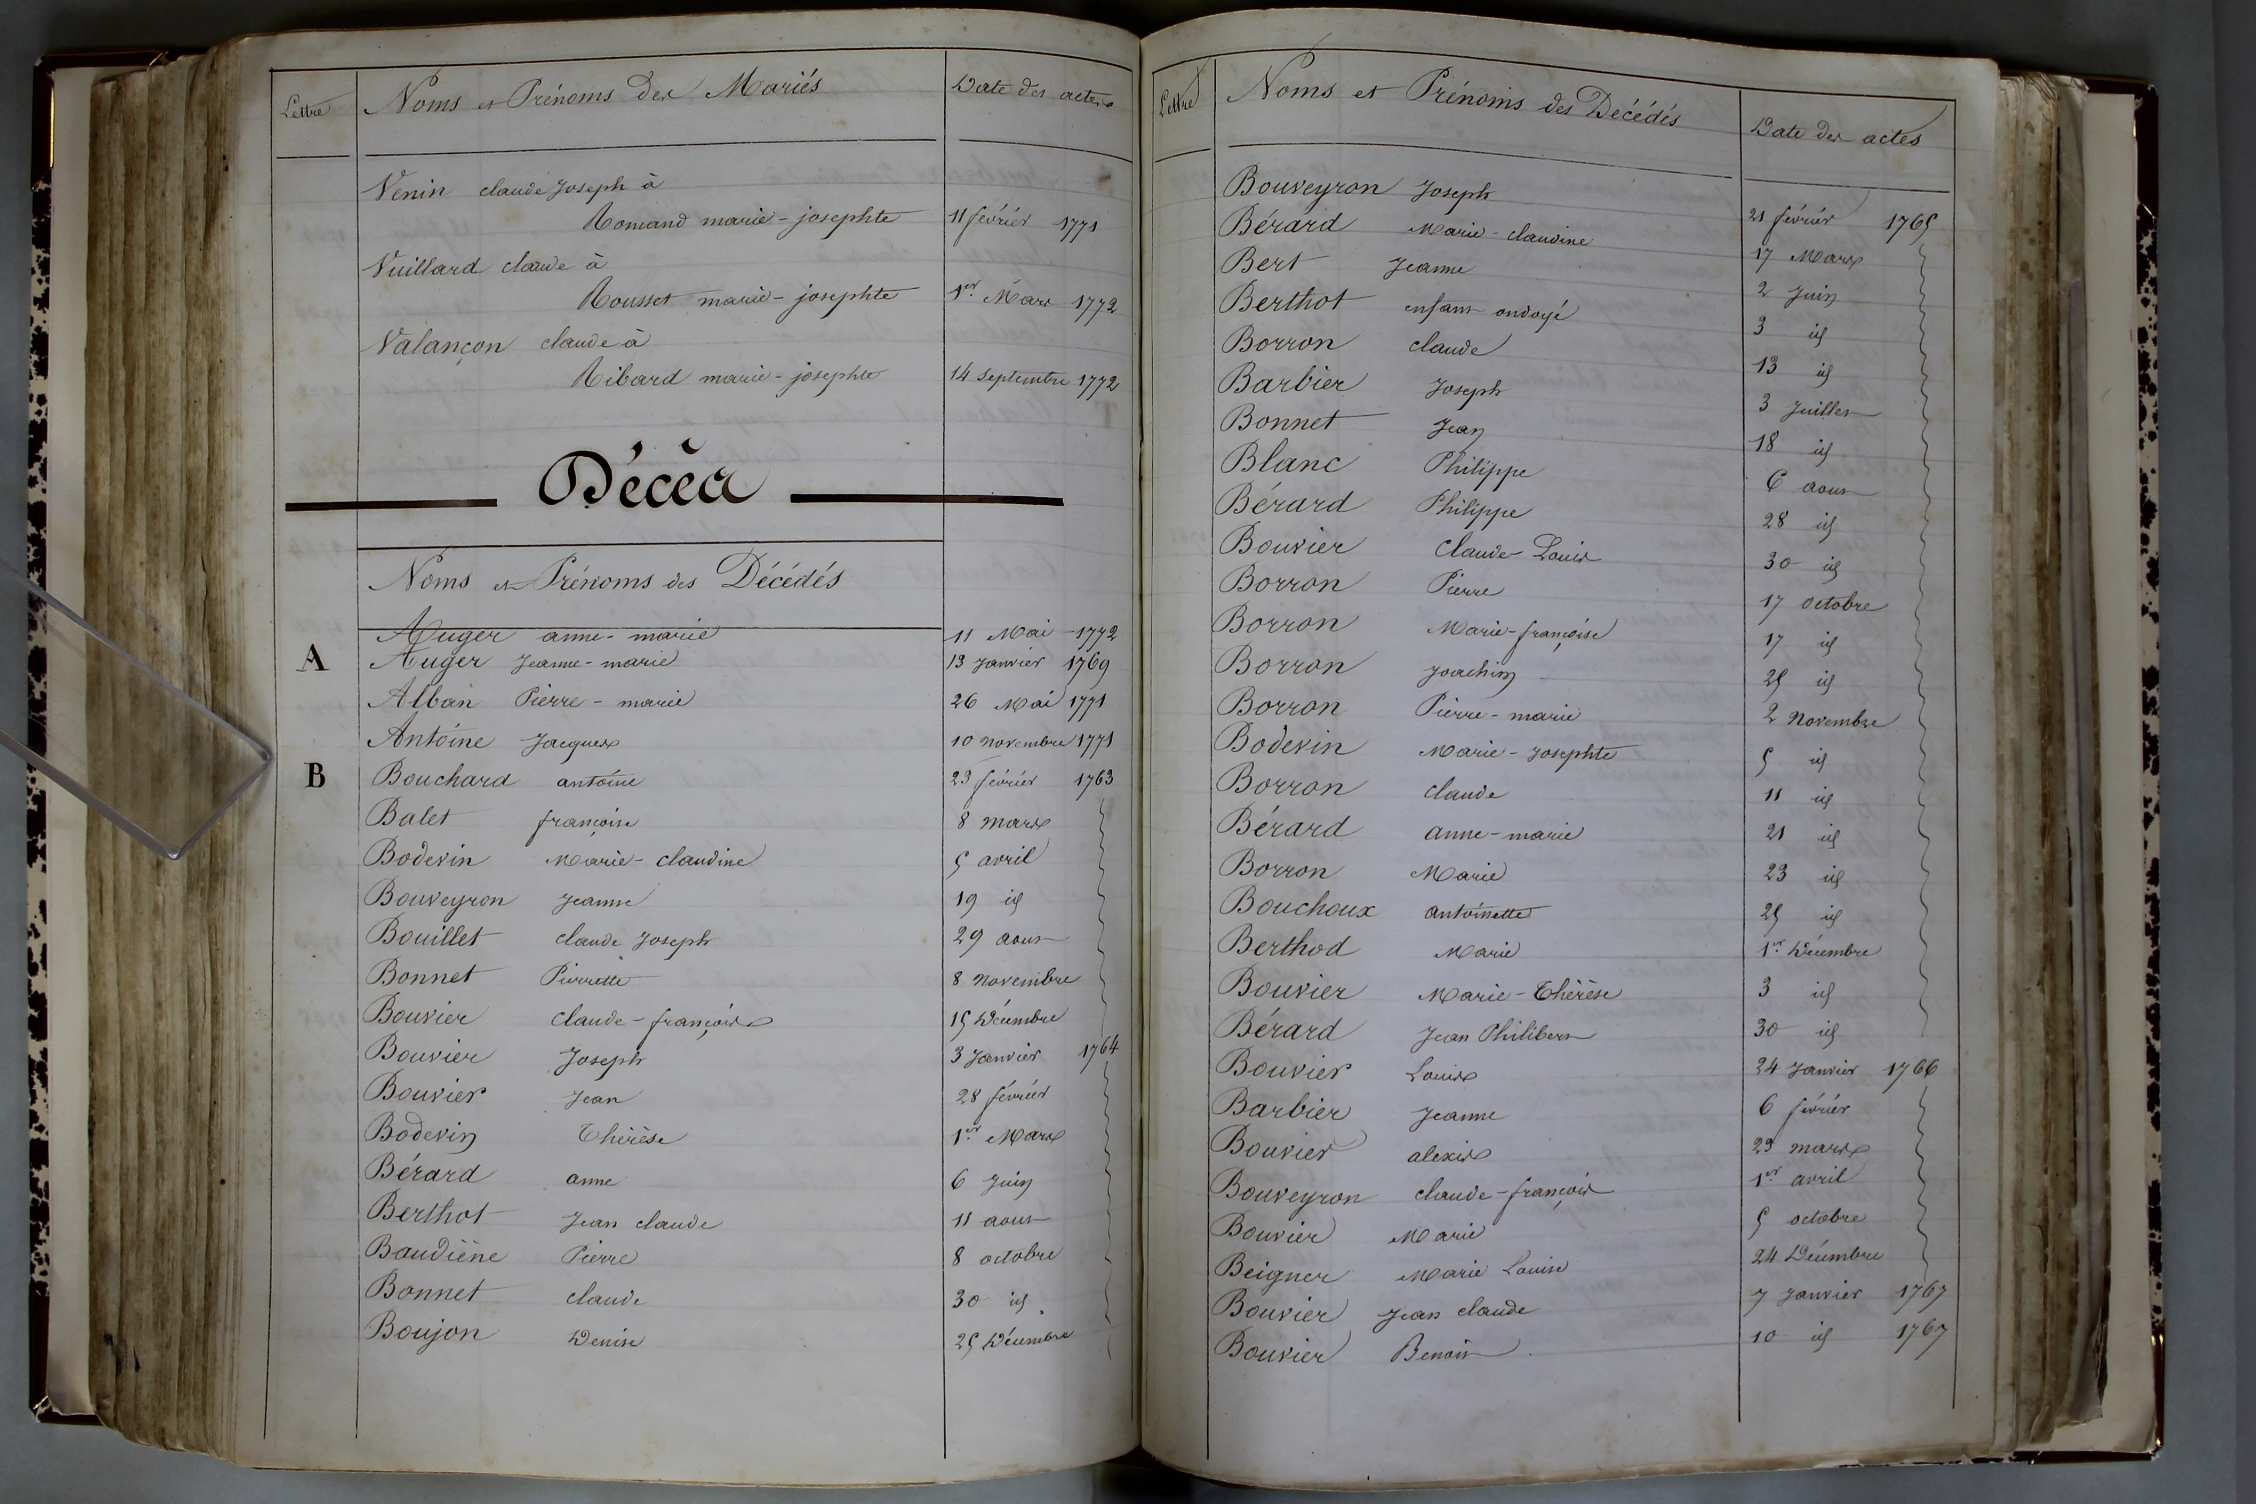 Lettre Noms et Prénoms des Mariés Date des actes
Venin claude Joseph à
Romand marie-josephte 11 février 1771
Vuillard claude à
Rousset marie-josephte 1er Mars 1772
Valançon claude à
Ribard marie-josephte 14 septembre 1772
Décès
Noms et Prénoms des Décédés
Auger anne-marie 11 Mai 1772
A Auger Jeanne-marie 13 Janvier 1769
Alban Pierre-marie 26 Mai 1771
Antoine Jacques 10 novembre 1771
B Bouchard antoine 23 février 1763
Balet françoise 8 mars
Bodevin Marie-claudine 5 avril
Bouveyron Jeanne 19 id
Bouillet claude Joseph 29 aout
Bonnet Pierrette 8 novembre
Bouvier claude-françois 15 Décembre
Bouvier Joseph 3 Janvier 1764
Bouvier Jean 28 février
Bodevin Thérèse 1er Mars
Bérard anne 6 Juin
Berthot Jean claude 11 aout
Baudiène Pierre 8 octobre
Bonnet claude 30 id
Boujon Denise 25 Décembre
Lettre Noms et Prénoms des Décédés Date des actes
Bouveyron Joseph 21 février 1765
Bérard Marie-claudine 17 Mars
Bert Jeanne 2 Juin
Berthot enfant ondoyé 3 id
Borron claude 13 id
Barbier Joseph 3 Juillet
Bonnet Jean 18 id
Blanc Philippe 6 aout
Bérard Philippe 28 id
Bouvier Claude-Louis 30 id
Borron Pierre 17 octobre
Borron Marie-françoise 17 id
Borron Joachim 25 id
Borron Pierre-marie 2 novembre
Bodevin Marie-Josephte 5 id
Borron claude 11 id
Bérard anne-marie 21 id
Borron Marie 23 id
Bouchoux antoinette 25 id
Berthod Marie 1er Décembre
Bouvier Marie-Thérèse 3 id
Bérard Jean Philibert 30 id
Bouvier Louis 24 Janvier 1766
Barbier Jeanne 6 février
Bouvier alexis 23 mars
Bouveyron claude-françois 1er avril
Bouvier Marie 5 octobre
Beigner Marie Louise 24 Décembre
Bouvier Jean claude 7 Janvier 1767
Bouvier Benoit 10 id 1767